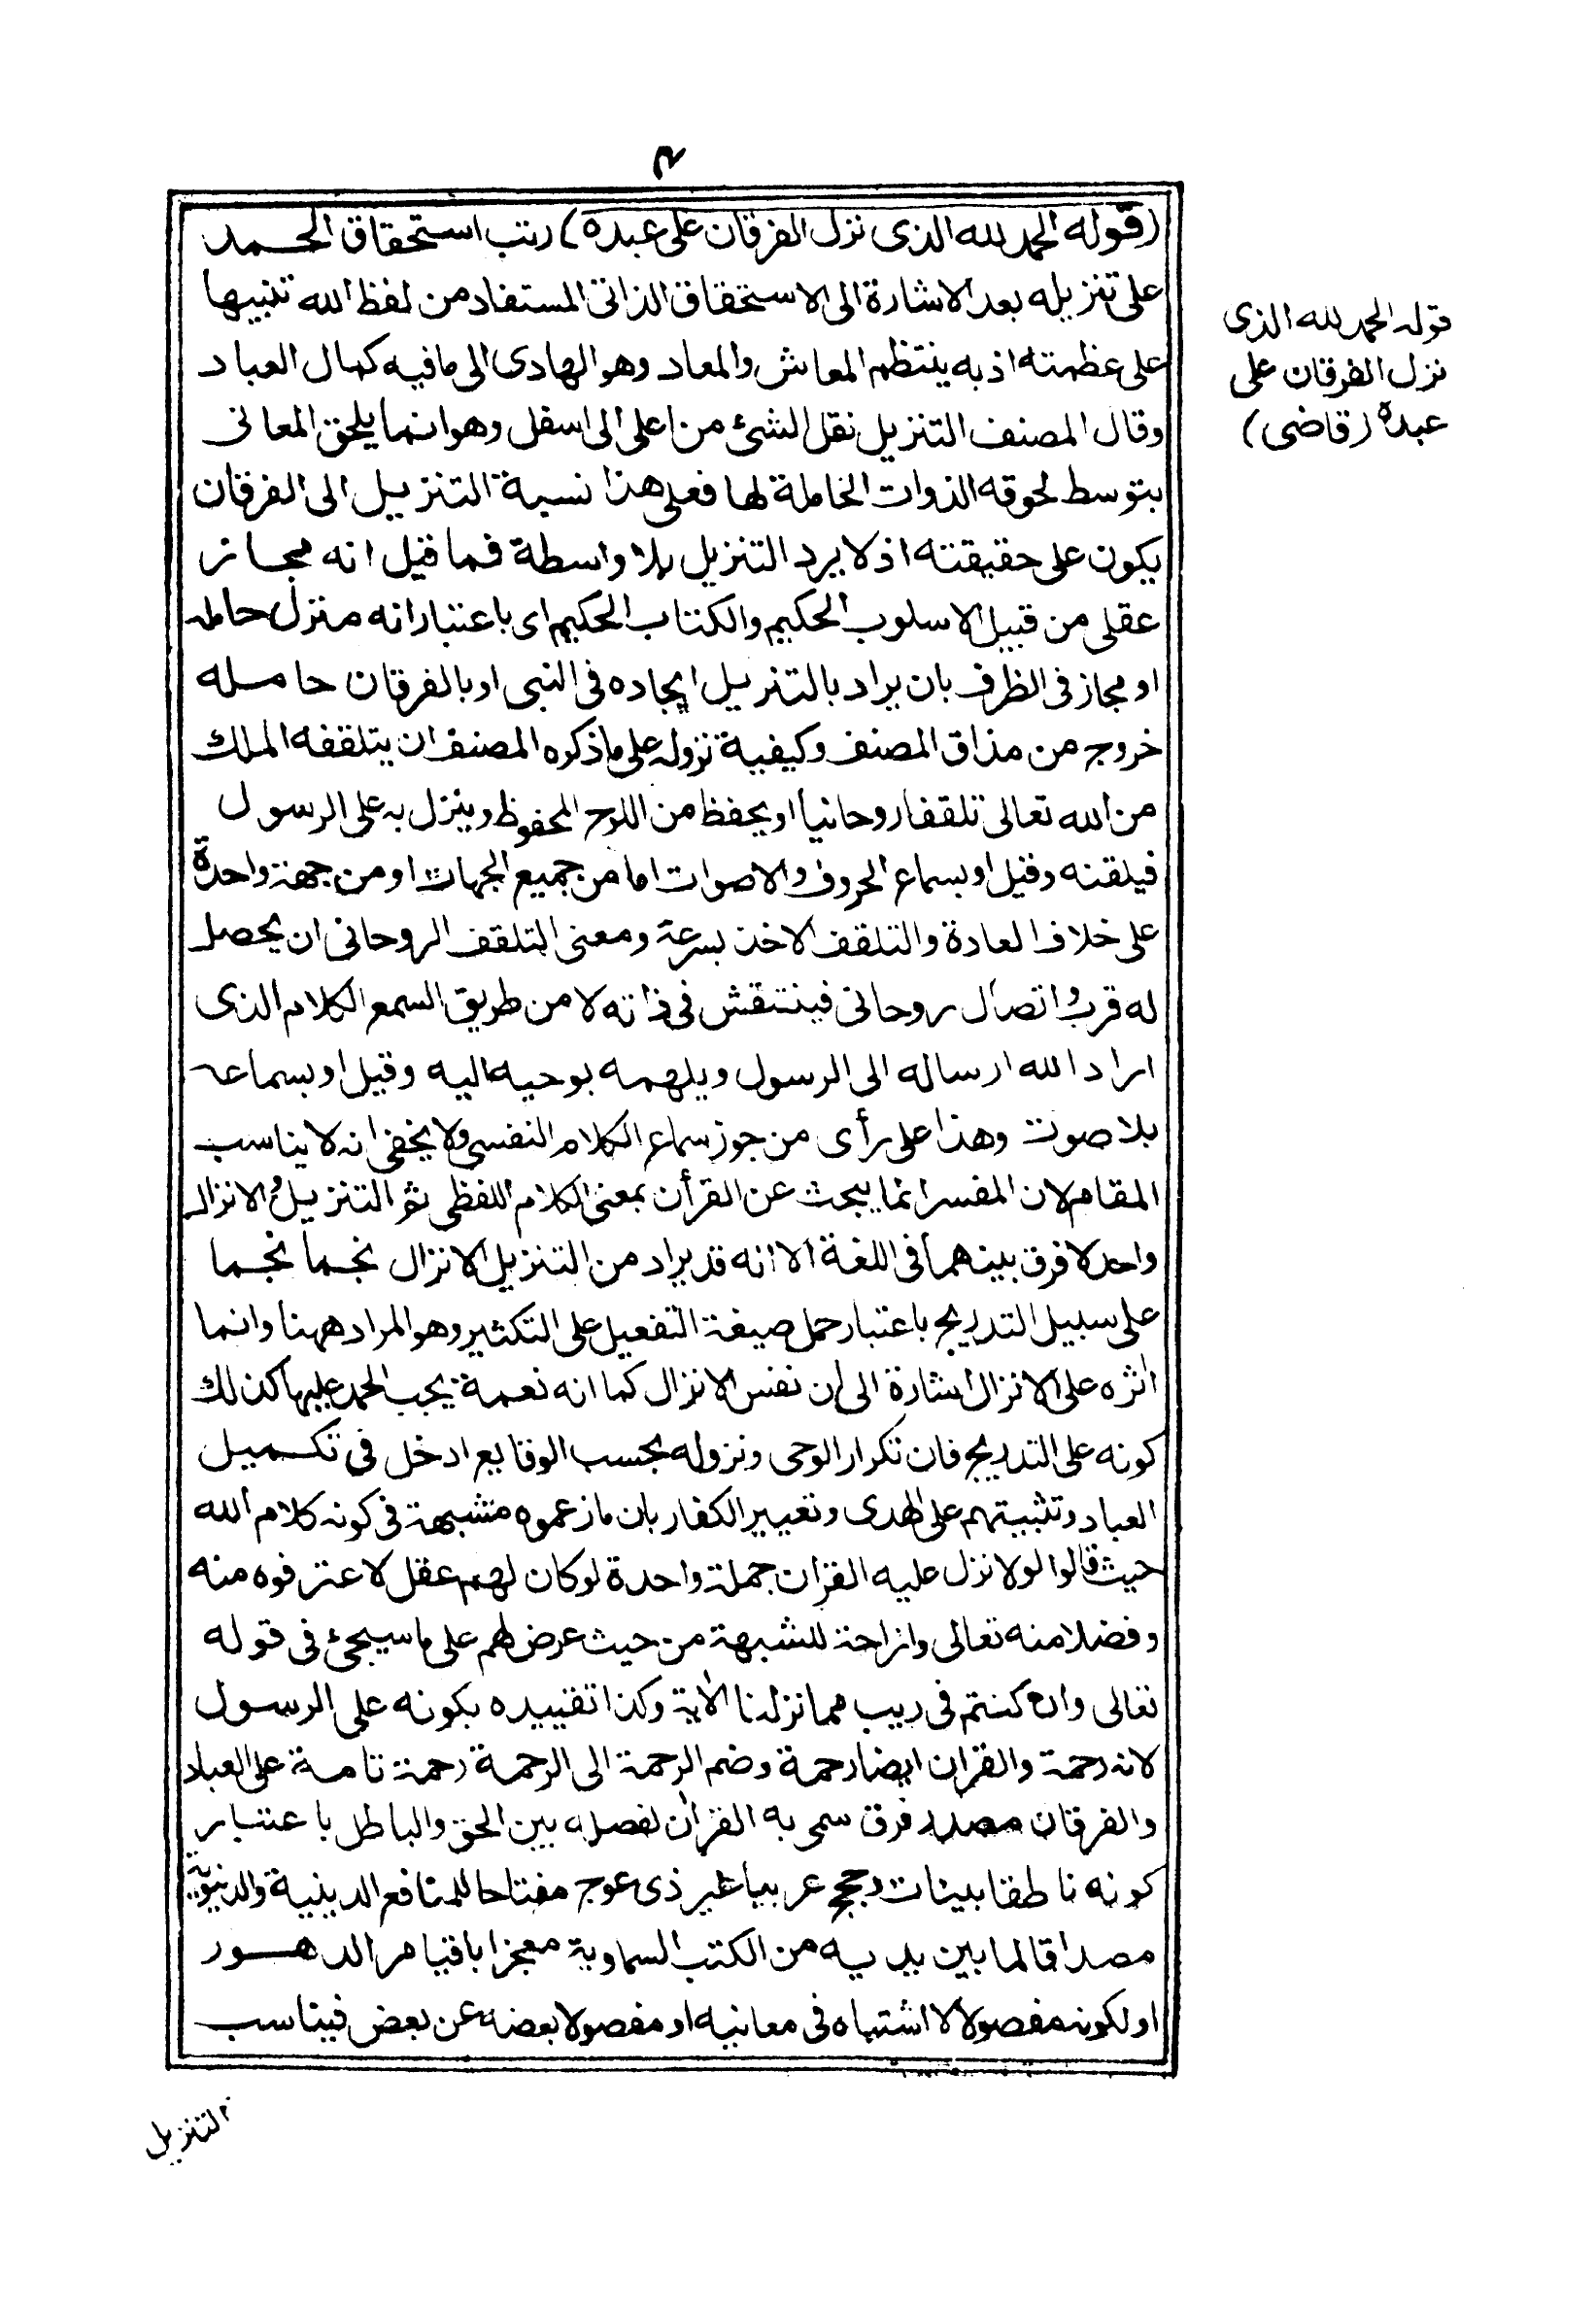 ٢
(قوله الحمد لله الذى نزل الفرقان على عبده) رتب استحقاق الحمد
على تنزيله بعد الاشارة الى الاستحقاق الذاتى المستفاد من لفظ الله تنبيها
على عظمته اذ به ينتظم المعاش والمعاد وهو الهادى الى ما فيه كمال العباد
وقال المصنف التنزيل نقل الشئ من اعلى الى اسفل وهو انما يلحق المعانى
بتوسط لحوقه الذوات الحاملة لها فعلى هذا نسبة التنزيل الى الفرقان
يكون على حقيقته اذ لا يرد التنزيل بلا واسطة فما قيل انه مجاز
عقلى من قبيل الاسلوب الحكيم والكتاب الحكيم اى باعتبار انه منزل حامله
او مجاز فى الظرف بان يراد بالتنزيل ايجاده فى النبى او بالفرقان حامله
خروج من مذاق المصنف وكيفية نزوله على ما ذكره المصنف ان يتلقفه الملك
من الله تعالى تلقفا روحانيا او يحفظ من اللوح المحفوظ وينزل به على الرسول
فيلقنه وقيل او بسماع الحروف والاصوات اما من جميع الجهات او من جهة واحدة
على خلاف العادة والتلقف الاخذ بسرعة ومعنى التلقف الروحانى ان يحصل
له قرب واتصال روحانى فينتقش فى ذاته لا من طريق السمع الكلام الذى
اراد الله ارساله الى الرسول ويلهمه بوحيه اليه وقيل او بسماعه
بلا صوت وهذا على رأى من جوز سماع الكلام النفسى ولا يخفى انه لا يناسب
المقام لان المفسر انما يبحث عن القرأن بمعنى الكلام اللفظى ثم التنزيل والانزال
واحد لا فرق بينهما فى اللغة الا انه قد يراد من التنزيل الانزال نجما نجما
على سبيل التدريج باعتبار حمل صيغة التفعيل على التكثير وهو المراد ههنا وانما
اثره على الانزال اشارة الى ان نفس الانزال كما انه نعمة يجب الحمد عليها كذلك
كونه على التدريج فان تكرار الوحى ونزوله بحسب الوقايع ادخل فى تكميل
العباد وتثبيتهم على الهدى وتعيير الكفار بان ما زعموه متشبهة فى كونه كلام الله
حيث قالوا لولا نزل عليه القران جملة واحدة لو كان لهم عقل لاعترفوه منه
وفضلا منه تعالى وازاحة للشبهة من حيث عرض لهم على ما سيجئ فى قوله
تعالى وان كنتم فى ريب مما نزلنا الاية وكذا تقييده بكونه على الرسول
لانه رحمة والقران ايضا رحمة وضم الرحمة الى الرحمة رحمة تامة على العباد
والفرقان مصدر فرق سمى به القرأن لفصله بين الحق والباطل باعتبار
كونه ناطقا ببينات وحجج عربيا غير ذى عوج مفتاحا للمنافع الدينية والدنيوية
مصداقا لما بين يديه من الكتب السماوية معجزا باقيا مر الدهور
او لكونه مفصولا لا اشتباه فى معانيه او مفصولا بعضه عن بعض فيناسب
التنزيل
قوله الحمد لله الذى
نزل الفرقان على
عبده (قاضى)